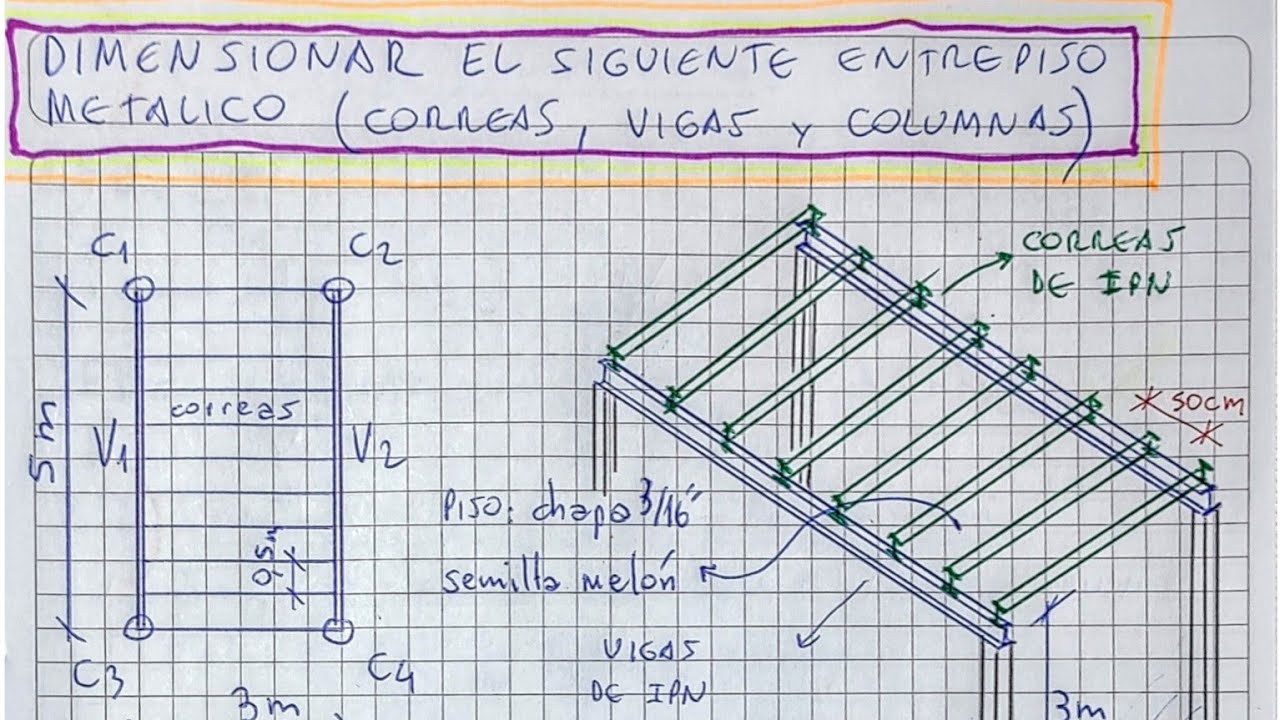 DIMENSIONAR EL SIGUIENTE ENTREPISO
METALICO (CORREAS, VIGAS Y COLUMNAS)
C1
C2
5m
V1
correas
V2
0,5m
C3
C4
3m
CORREAS
DE IPN
50cm
PISO: chapa 3/16"
semilla melón
VIGAS
DE IPN
3m